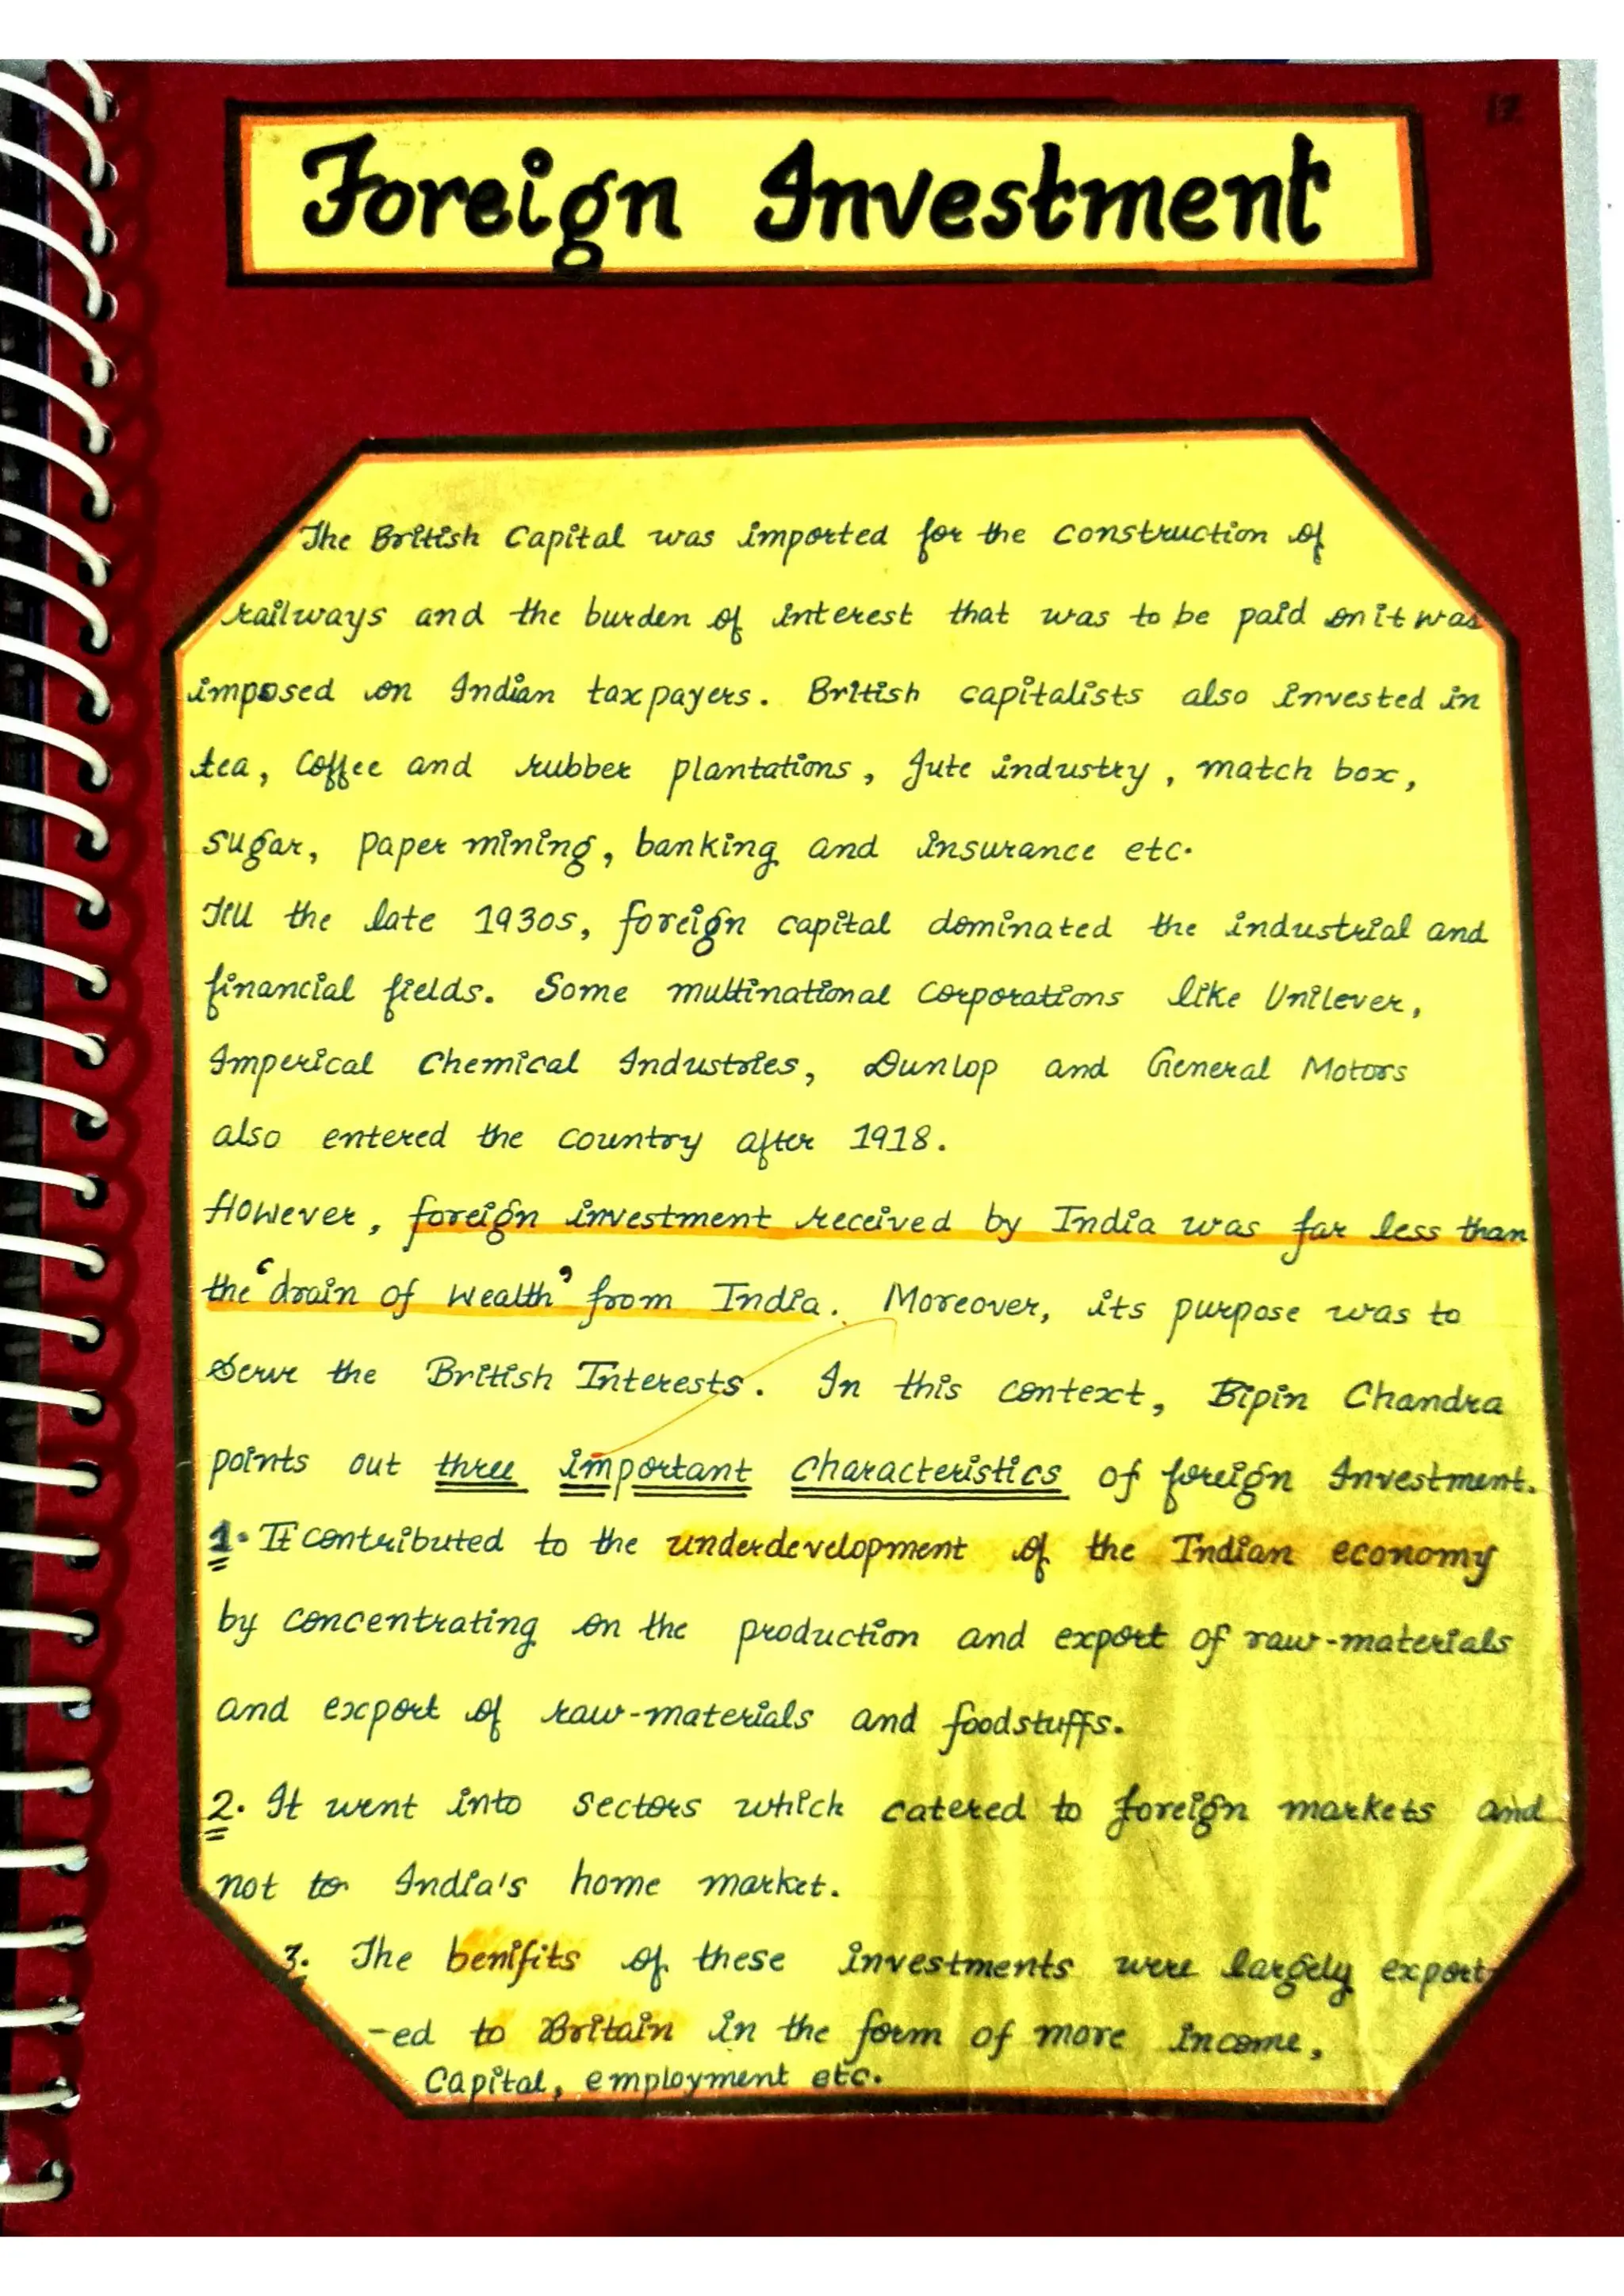 12
Foreign Investment
The British Capital was imported for the construction of
railways and the burden of interest that was to be paid on it was
imposed on Indian taxpayers. British capitalists also invested in
tea, Coffee and rubber plantations, Jute industry, match box,
sugar, paper mining, banking and insurance etc.
Till the late 1930s, foreign capital dominated the industrial and
financial fields. Some multinational corporations like Unilever,
Imperical Chemical Industries, Dunlop and General Motors
also entered the country after 1918.
However, foreign investment received by India was far less than
the 'drain of wealth' from India. Moreover, its purpose was to
Serve the British Interests. In this context, Bipin Chandra
points out three important characteristics of foreign Investment.
1. It contributed to the underdevelopment of the Indian economy
by concentrating on the production and export of raw-materials
and export of raw-materials and foodstuffs.
2. It went into sectors which catered to foreign markets and
not to India's home market.
3. The benifits of these investments were largely export
-ed to Britain in the form of more income,
Capital, employment etc.